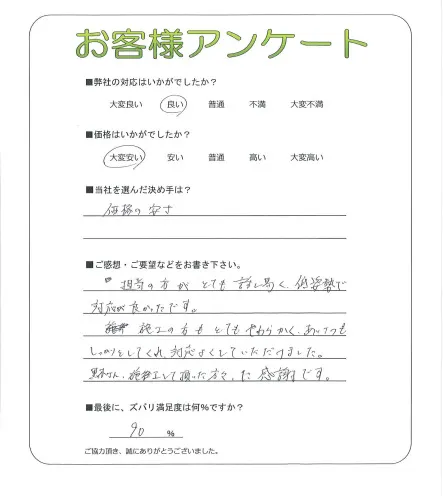 お客様アンケート
■弊社の対応はいかがでしたか？
大変良い 良い 普通 不満 大変不満
■価格はいかがでしたか？
大変安い 安い 普通 高い 大変高い
■当社を選んだ決め手は？
価格の安さ
■ご感想・ご要望などをお書き下さい。
担当の方がとても話し易く、低姿勢で
対応が良かったです。
施工の方もとてもやわらかく、あいさつも
しっかりとしてくれ、対応よくしていただけました。
施工して頂いた方々、に感謝です。
■最後に、ズバリ満足度は何%ですか？
90 %
ご協力頂き、誠にありがとうございました。